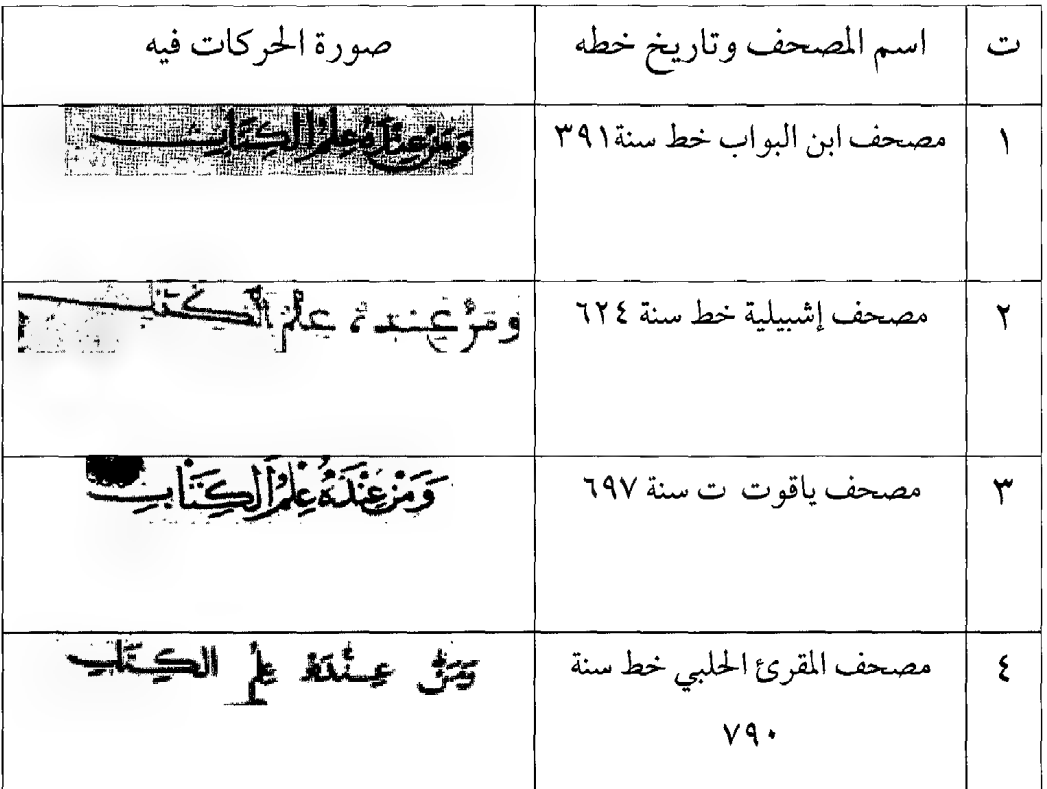 ت اسم المصحف وتاريخ خطه صورة الحركات فيه
١ مصحف ابن البواب خط سنة ٣٩١ وَمَنْ عِنْدَهُ عِلْمُ الْكِتَابِ
٢ مصحف إشبيلية خط سنة ٦٢٤ وَمَنْ عِندَهُ عِلْمُ الْكِتَٰبِ
٣ مصحف ياقوت ت سنة ٦٩٧ وَمَنْ عِنْدَهُ عِلْمُ الْكِتَابِ
٤ مصحف المقرئ الحلبي خط سنة وَمَنْ عِنْدَهُ عِلْمُ الْكِتَابِ
٧٩٠